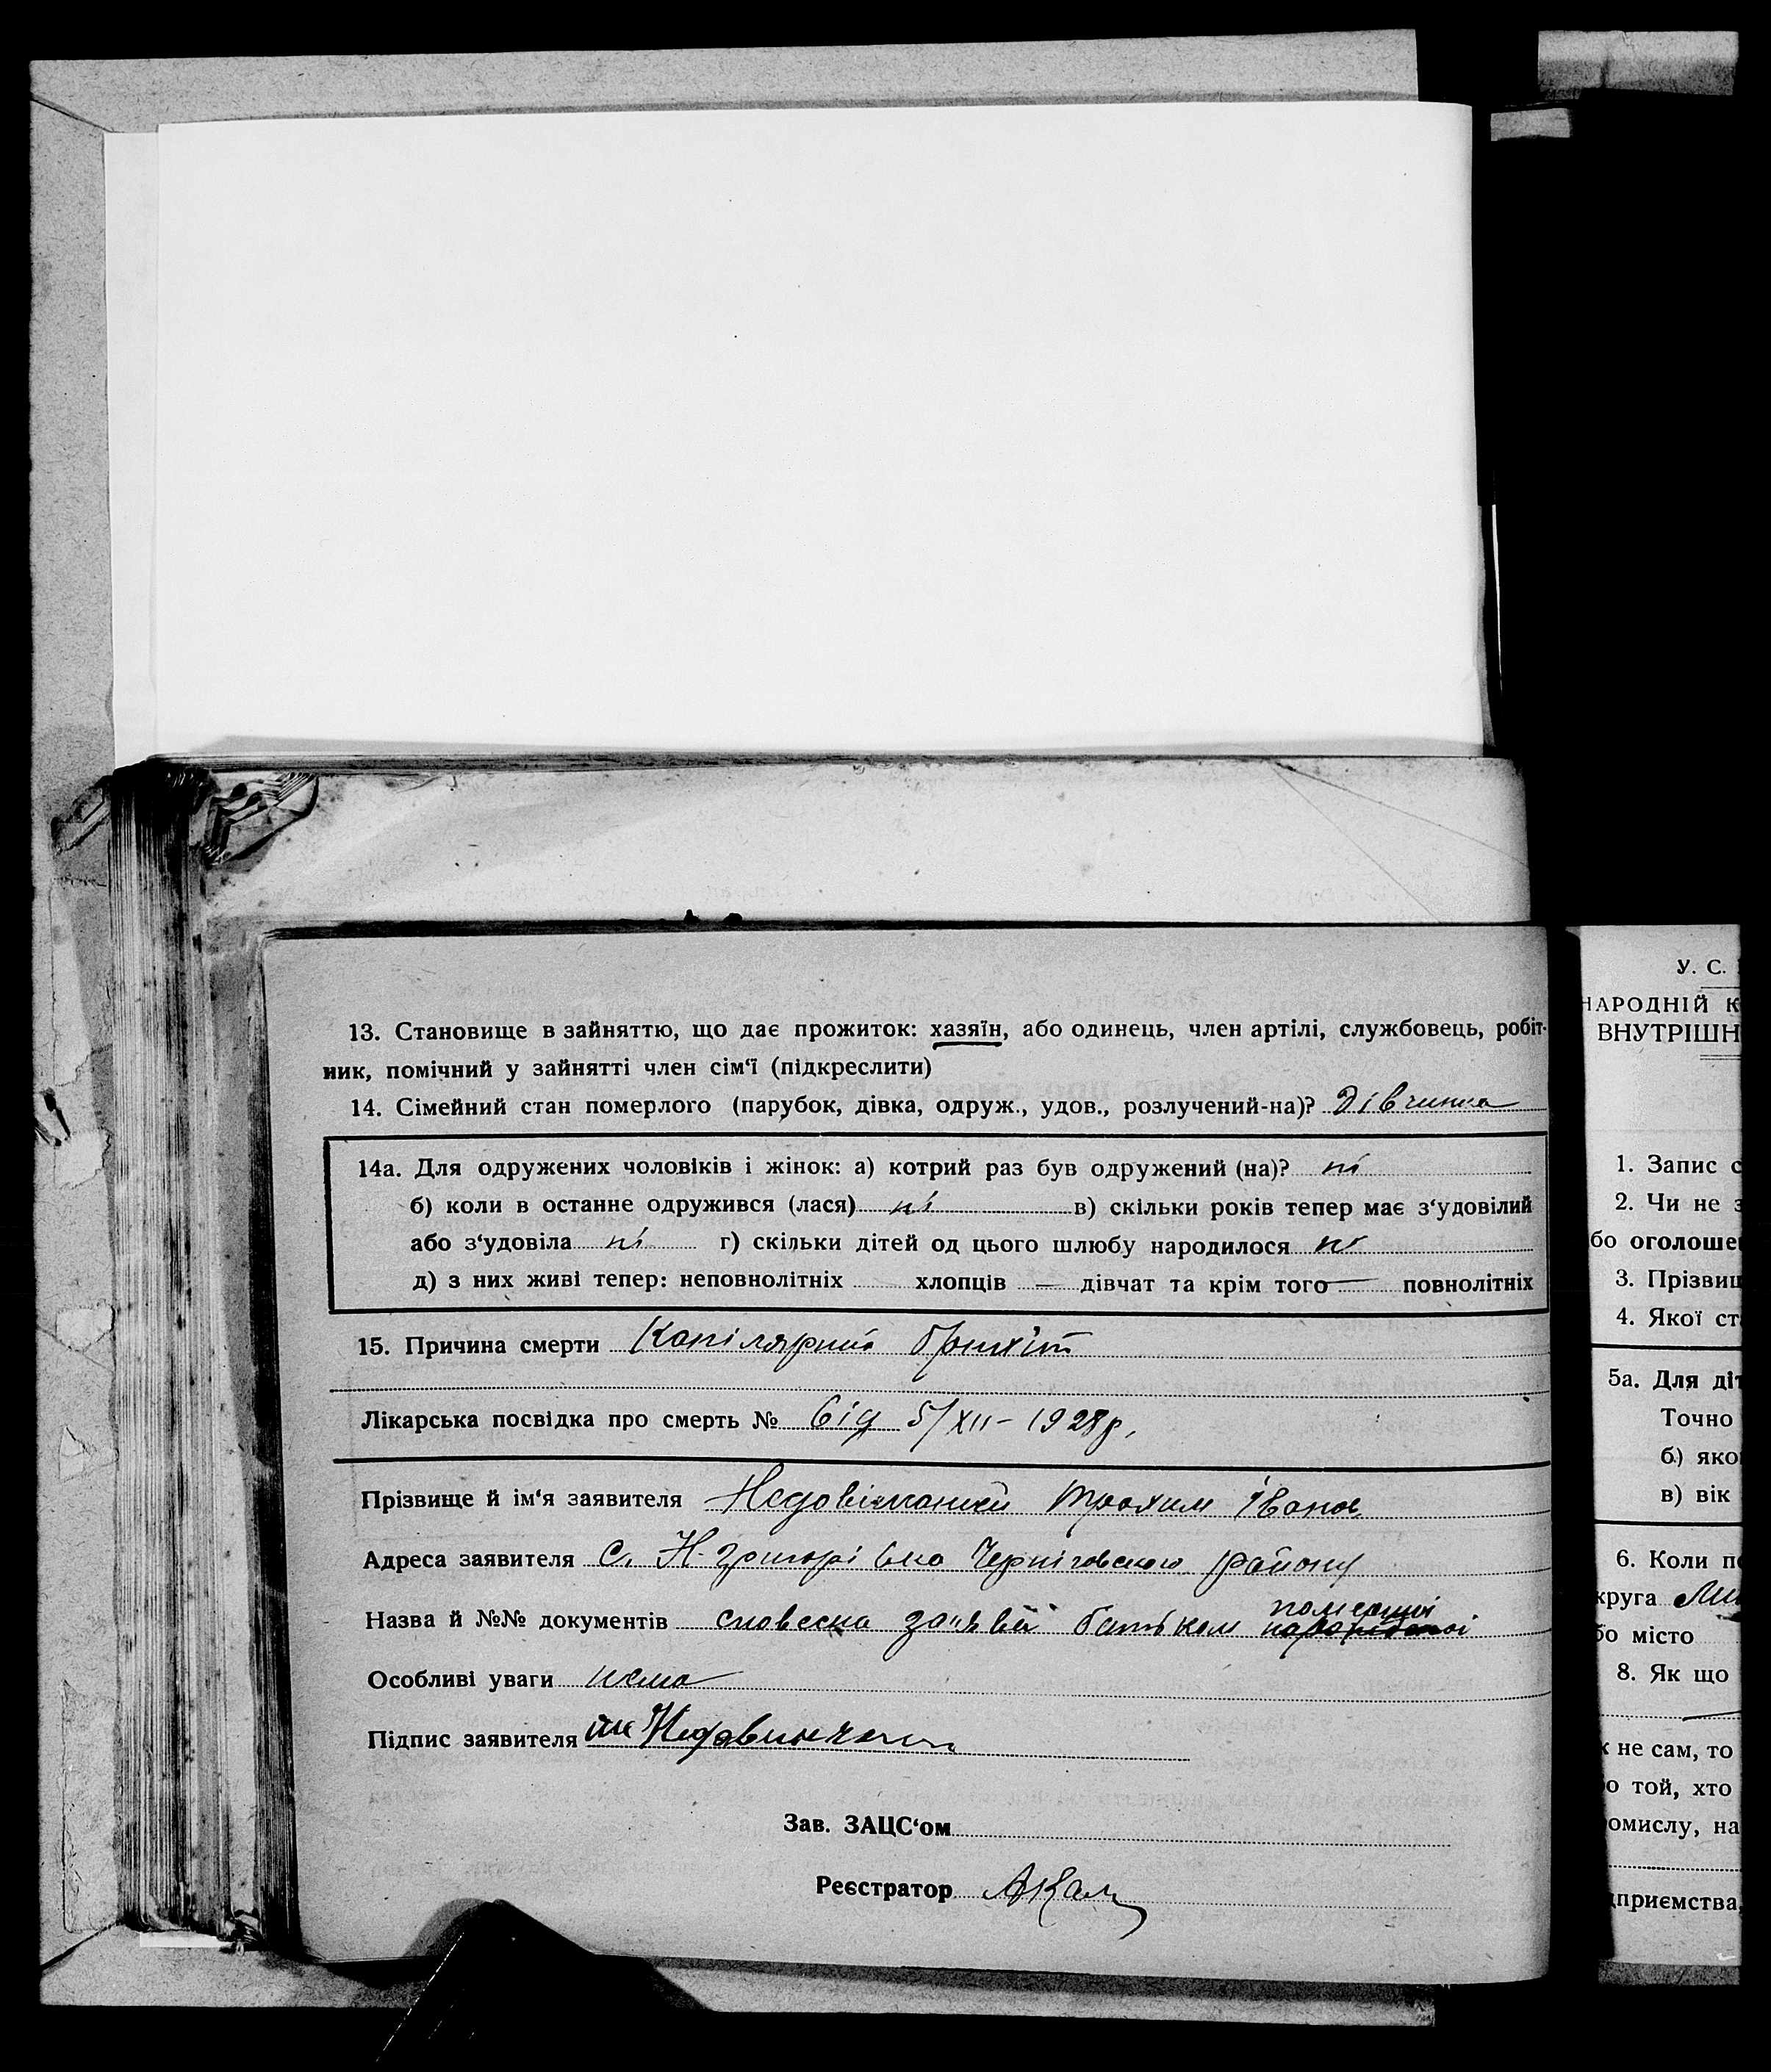 13. Становище в зайняттю, що дає прожиток: хазяїн, або одинець, член артілі, службовець, робіт-
ник, помічний у зайнятті член сім‘ї (підкреслити)
14. Сімейний стан померлого (парубок, дівка, одруж., удов., розлучений-на)? Дівчинка
14а. Для одружених чоловіків і жінок: а) котрий раз був одружений (на)? ні
б) коли в останне одружився (лася) ні в) скільки років тепер має з‘удовілий
або з‘удовіла ні г) скільки дітей од цього шлюбу народилося ні
д) з них живі тепер: неповнолітніх хлопців — дівчат та крім того — повнолітніх
15. Причина смерти Капілярний брихіт
Лікарська посвідка про смерть № від 5/XII – 1928 р.
Прізвище й ім‘я заявителя Трохим Іванов
Адреса заявителя с. Н-Григорівка Черніговського району
Назва й №№ документів словесна заява батьком помершої
Особливі уваги нема
Підпис заявителя
Зав. ЗАЦС‘ом
Реєстратор
У. С.
НАРОДНІЙ К
ВНУТРІШН
1. Запис с
2. Чи не з
бо оголоше
3. Прізвищ
4. Якої ст
5а. Для діт
Точно
б) яко
в) вік
6. Коли п
круга
бо місто
8. Як що
к не сам, то
о той, хто
омислу, на
дприємства,